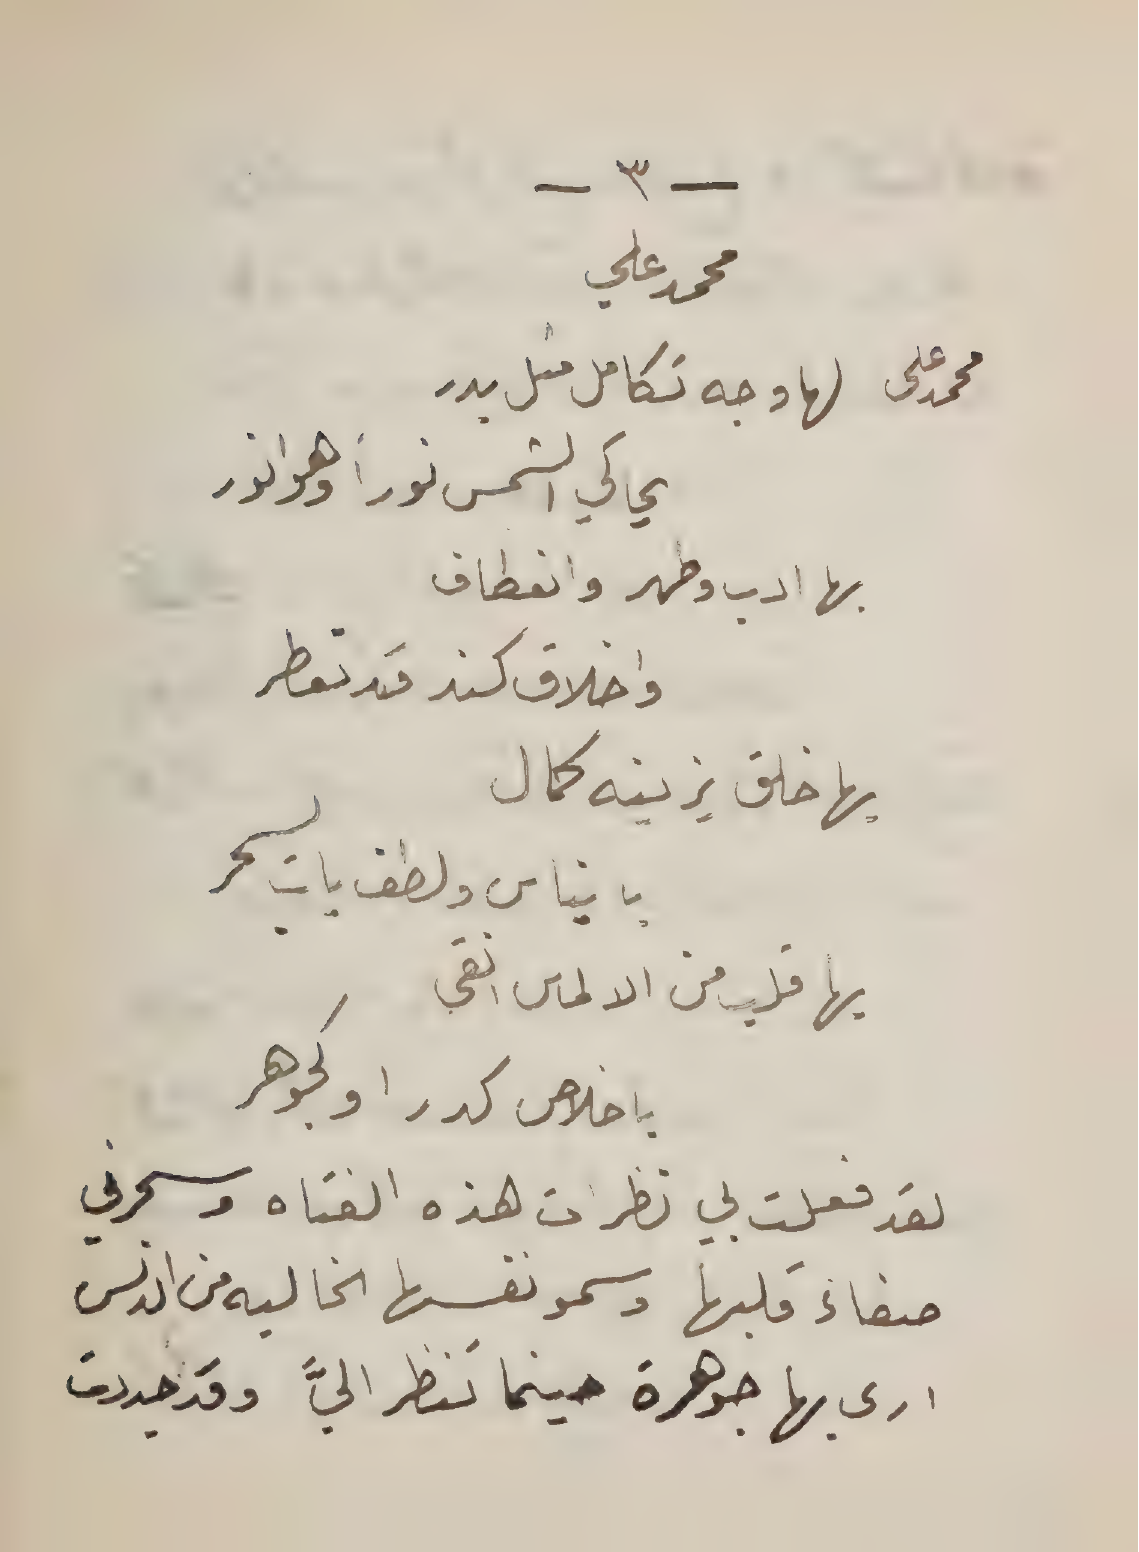 — ٣ —
محمد علي
محمد على لها وجه تكامل مثل بدر
يحاكي الشمس نوراً وهو انور
بها ادب وطهر وانعطاف
واخلاق كند قد تعطر
بها خلق يزينه كمال
بايناس ولطف بات يسحر
بها قلب من الالماس انقي
باخلاص كدر او كجوهر
لقد فعلت بي نظرات هذه الفتاه وسحرني
صفاء قلبها وسمو نفسها الخاليه من الدنس
ارى بها جوهرة حينما تنظر اليَّ وقد حددت